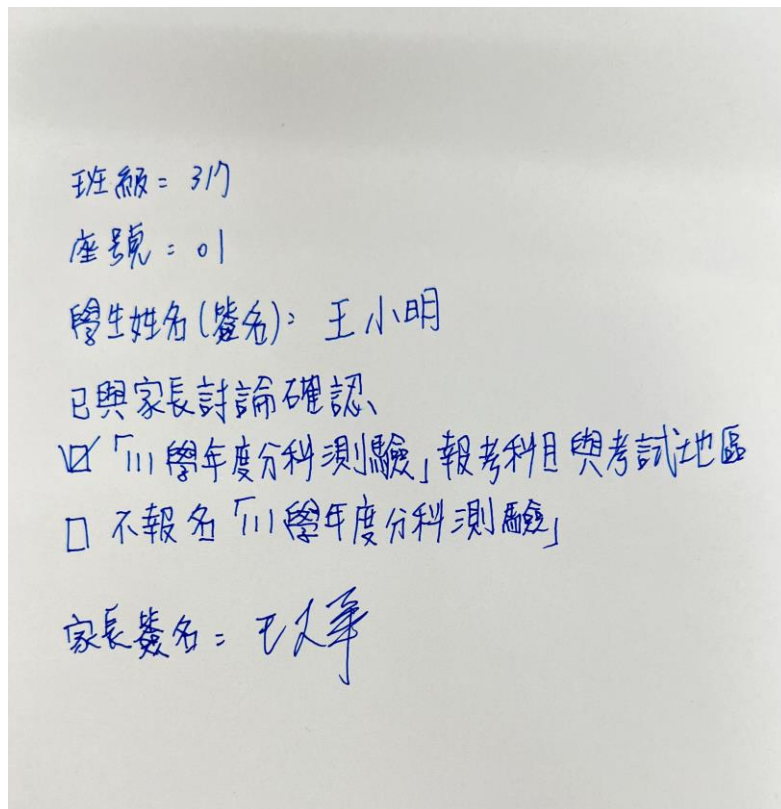 班級：317
座號：01
學生姓名(簽名)：王小明
已與家長討論確認、
☑「111學年度分科測驗」報考科目與考試地區
□ 不報名「111學年度分科測驗」
家長簽名：王大